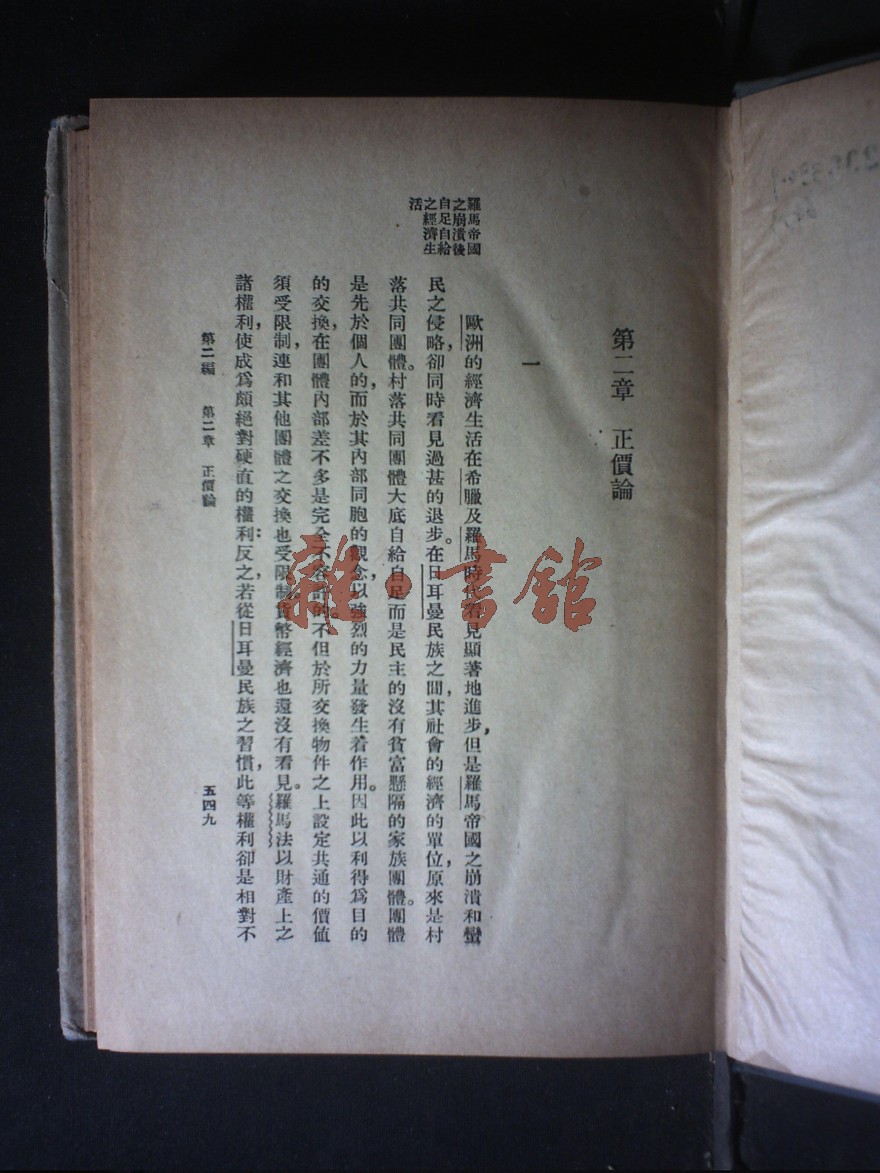 第二章　正價論
一
羅馬帝國
之崩潰後
自足自給
之經濟生
活
歐洲的經濟生活在希臘及羅馬時代看見顯著地進步，但是羅馬帝國之崩潰和蠻
民之侵略，卻同時看見過甚的退步。在日耳曼民族之間，其社會的經濟的單位，原來是村
落共同團體。村落共同團體大底自給自足而是民主的沒有貧富懸隔的家族團體。團體
是先於個人的，而於其內部同胞的觀念，以強烈的力量發生着作用。因此以利得爲目的
的交換，在團體內部差不多是完全不容許的。不但於所交換物件之上設定共通的價值
須受限制，連和其他團體之交換也受限制。貨幣經濟也還沒有看見。羅馬法以財產上之
諸權利，使成爲頗絕對硬直的權利：反之，若從日耳曼民族之習慣，此等權利卻是相對不
第二編　第二章　正價論　五四九
雜·書館